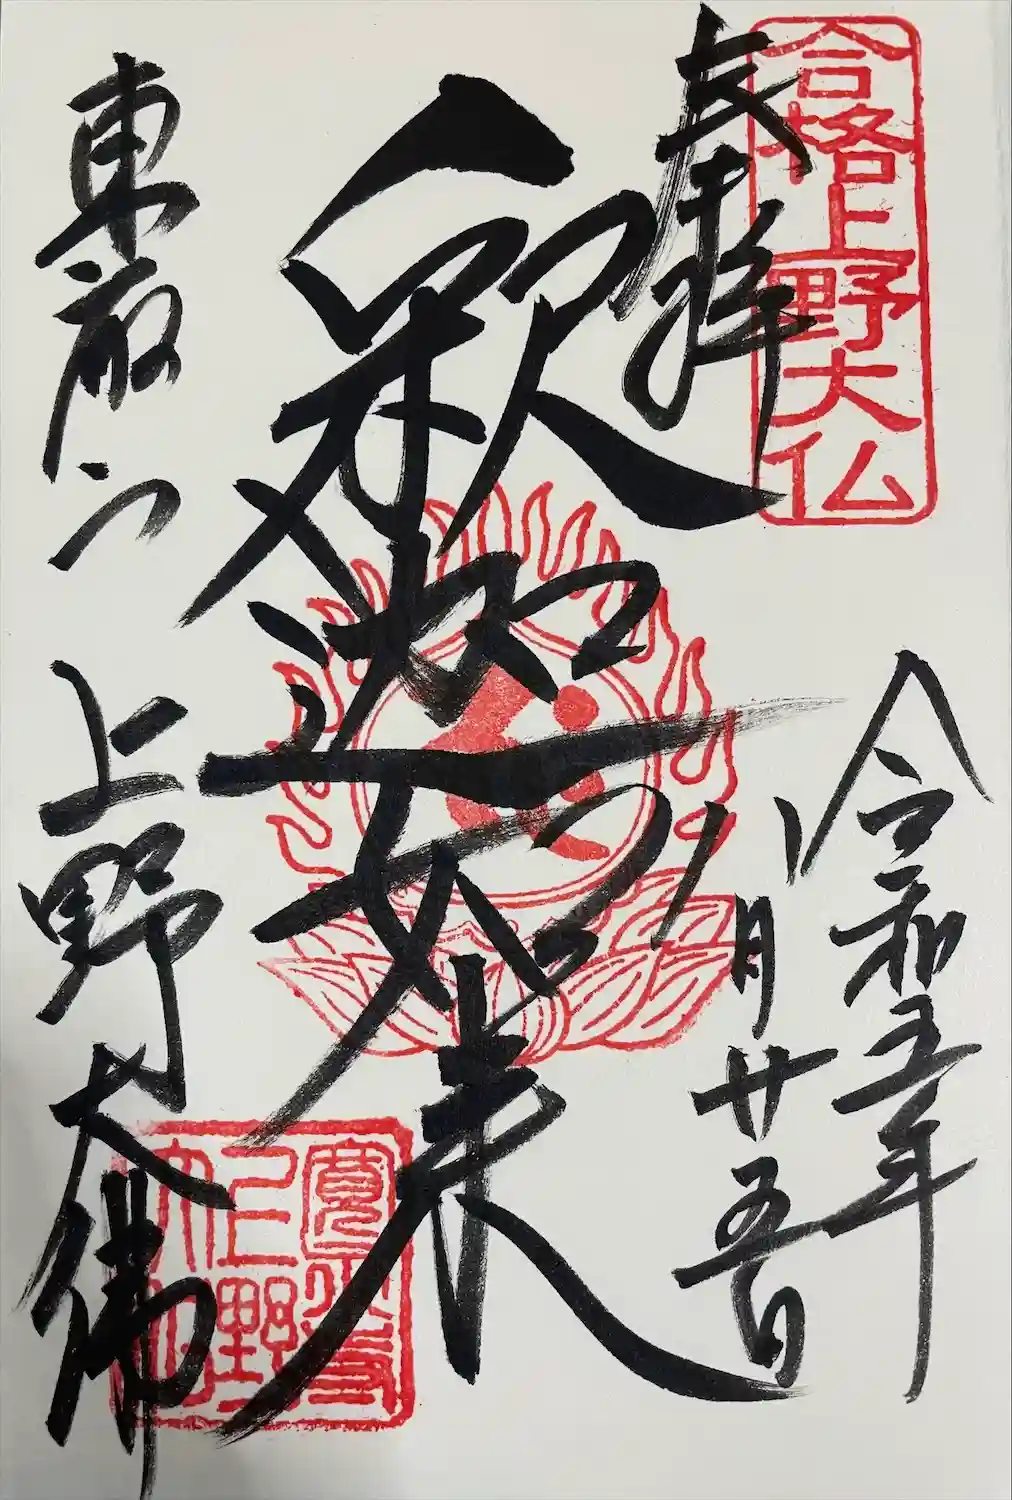 合格上野大仏
奉拝
令和五年
八月廿五日
釈迦如来
東叡山
上野大佛
寛永寺
上野